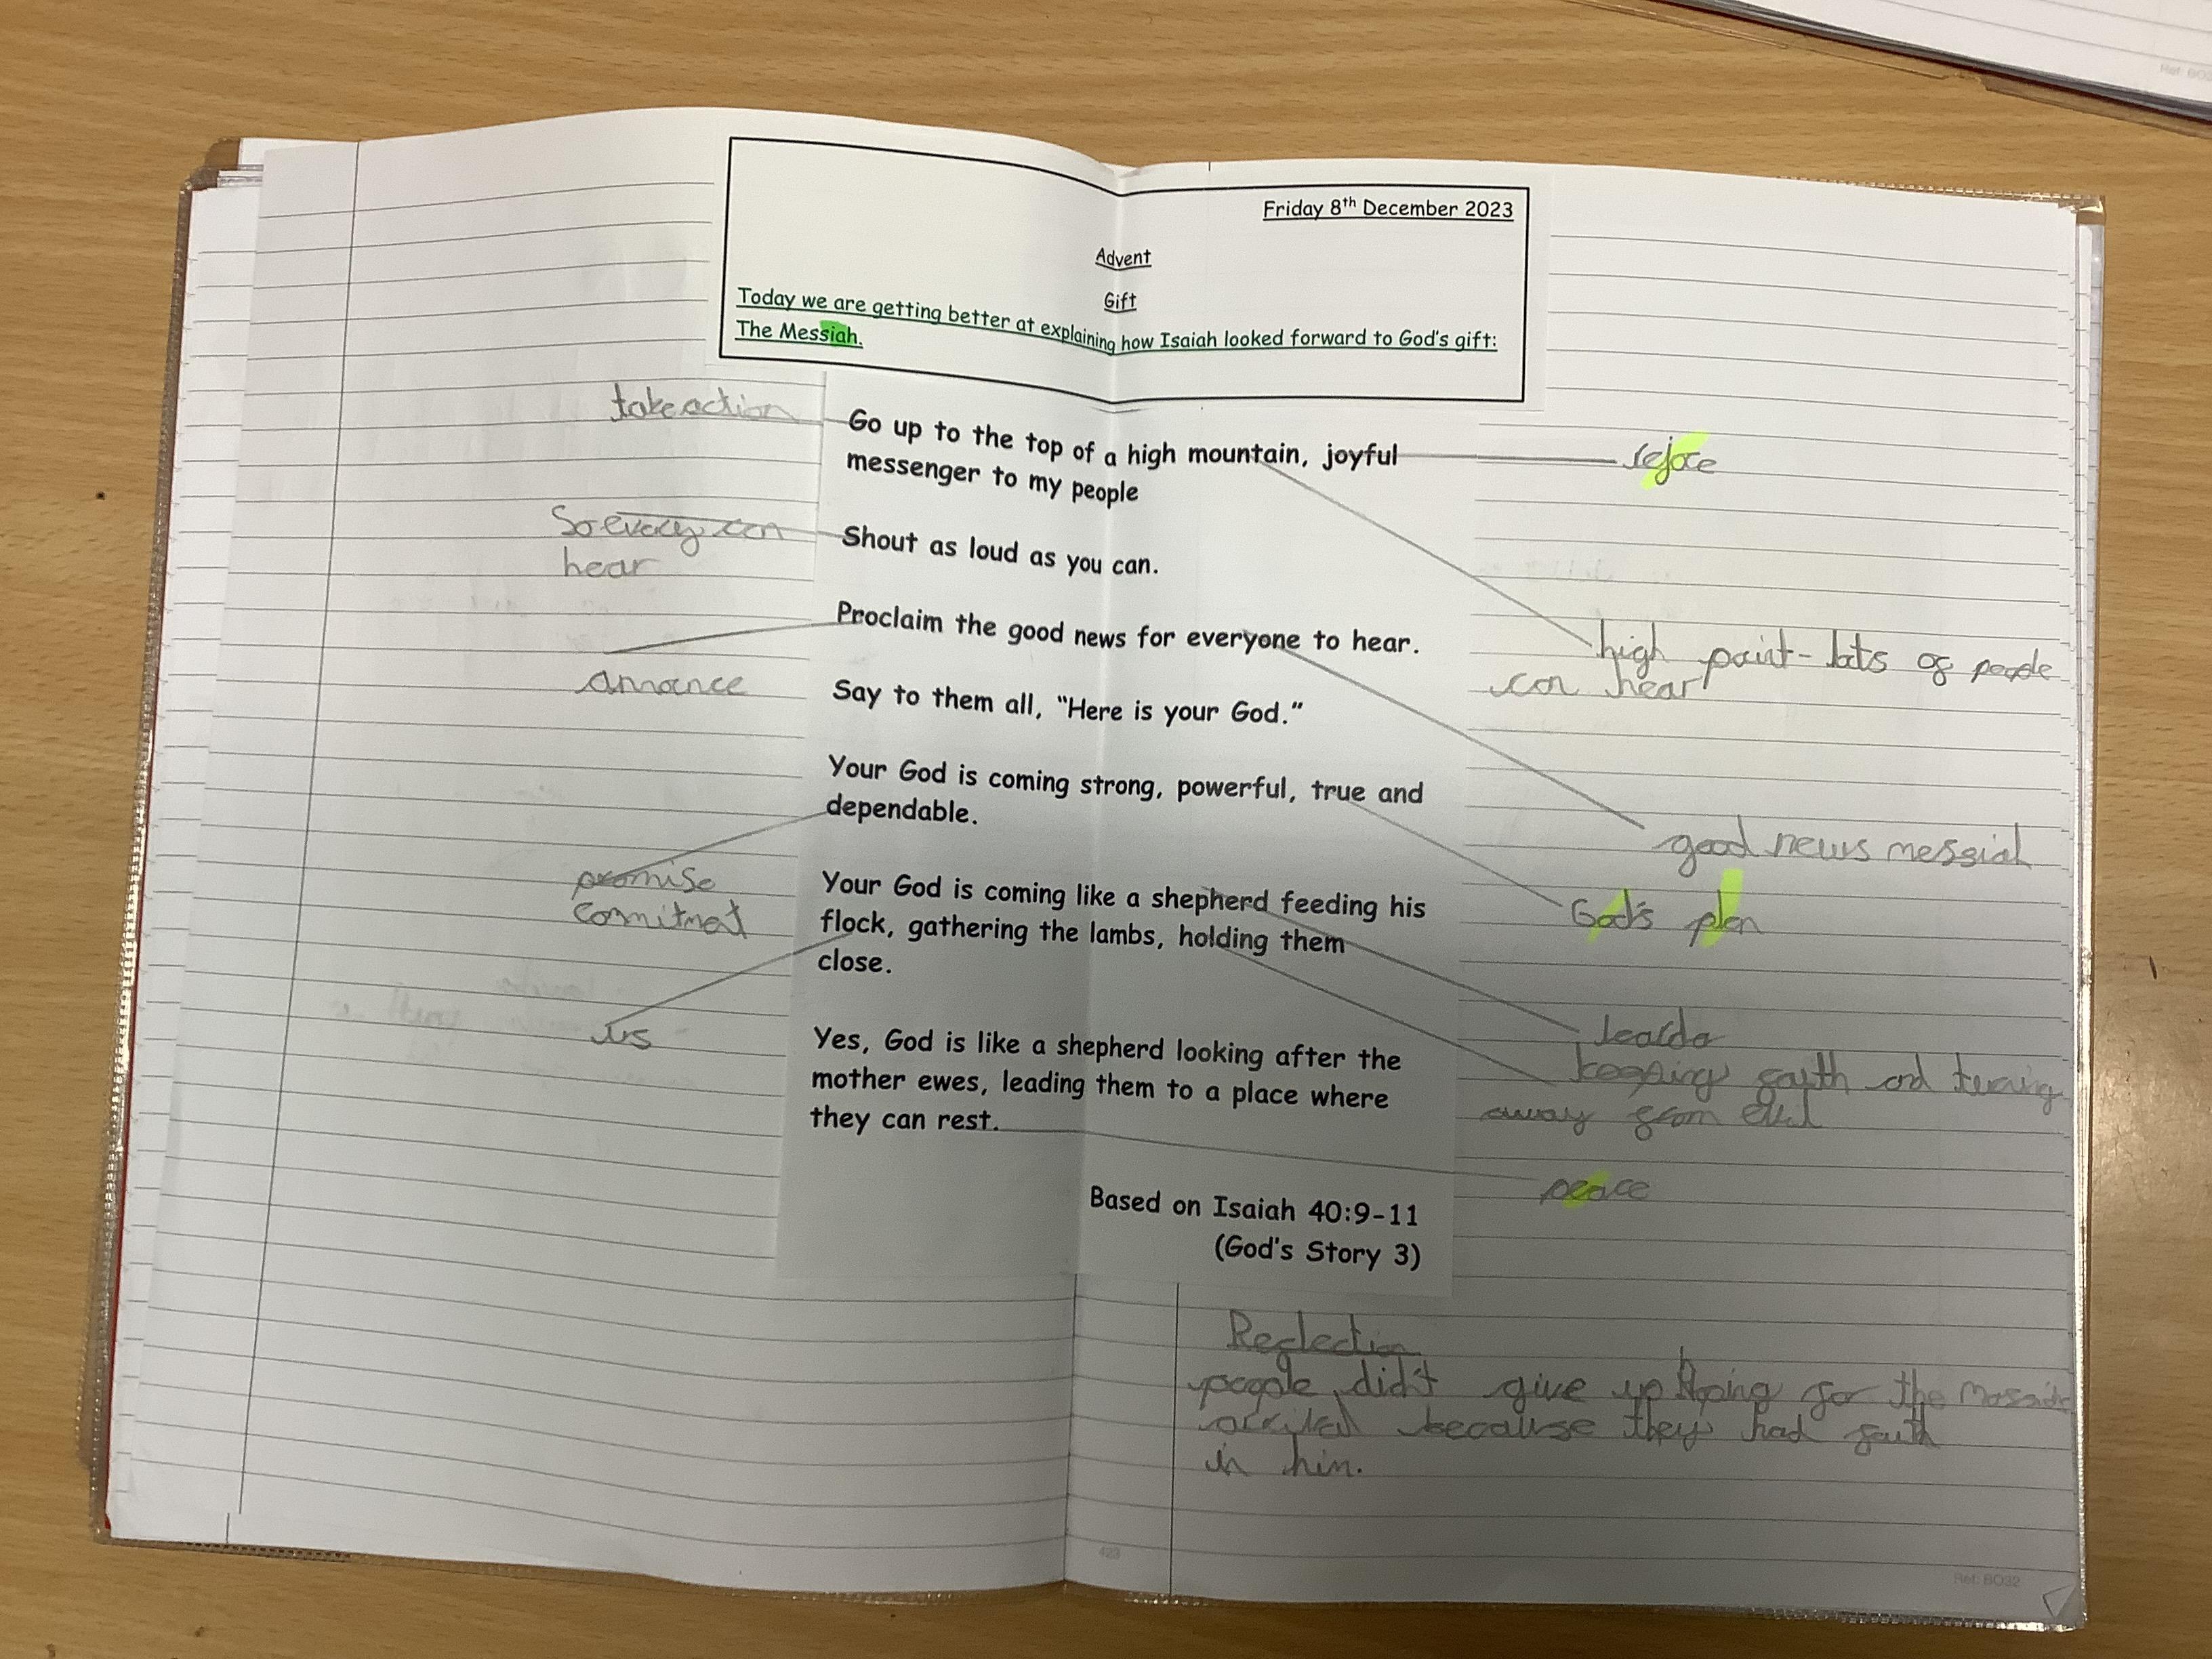 Friday 8th December 2023
Advent
Gift
Today we are getting better at explaining how Isaiah looked forward to God's gift:
The Messiah.
take action
Go up to the top of a high mountain, joyful
messenger to my people
rejoce
So every can
hear
Shout as loud as you can.
Proclaim the good news for everyone to hear.
high point - lots of people
can hear
annonce
Say to them all, "Here is your God."
Your God is coming strong, powerful, true and
dependable.
good news messiah
promise
commitmet
God's plan
Your God is coming like a shepherd feeding his
flock, gathering the lambs, holding them
close.
us
Yes, God is like a shepherd looking after the
mother ewes, leading them to a place where
they can rest.
keeping fayth and
away from evil
peace
Based on Isaiah 40:9-11
(God's Story 3)
Reflection
people didn't give up hoping for the
because they had faith
in him.
423
Ref: BO32